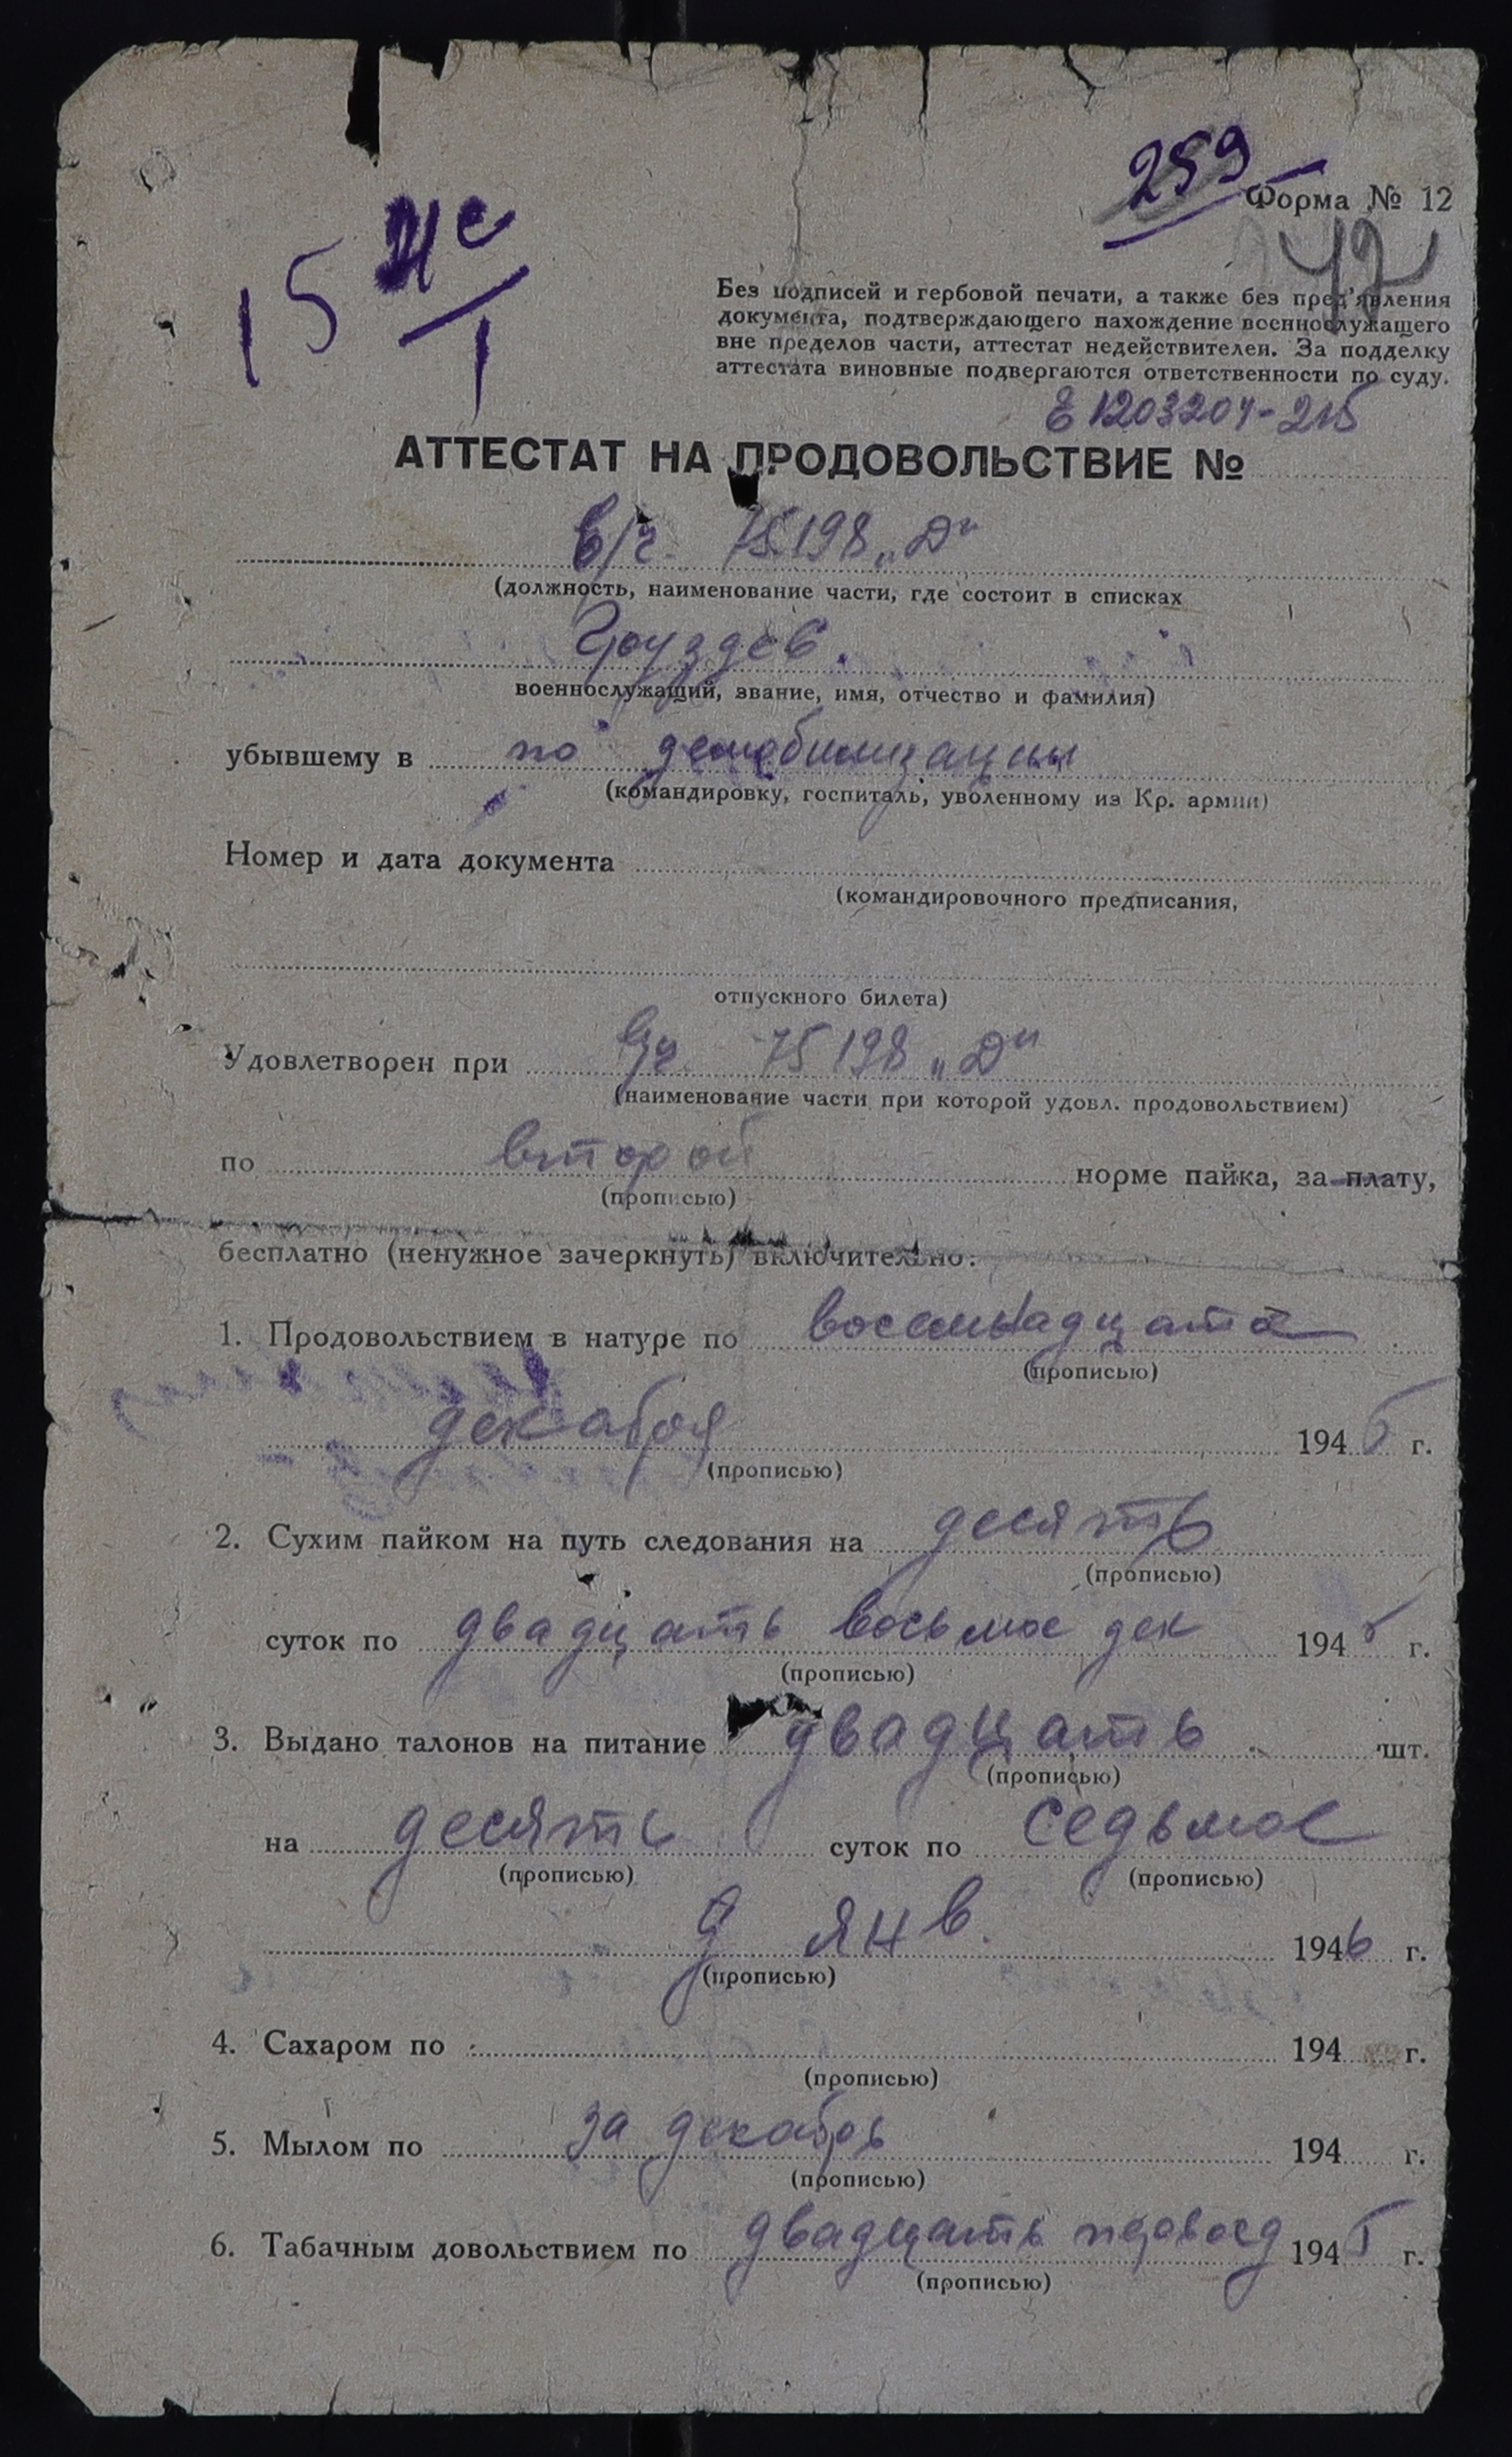 259
Форма № 12
42
15 Не/1
Без подписей и гербовой печати, а также без пред'явления
документа, подтверждающего нахождение военнослужащего
вне пределов части, аттестат недействителен. За подделку
аттестата виновные подвергаются ответственности по суду.
Е 1203204-215
АТТЕСТАТ НА ПРОДОВОЛЬСТВИЕ №
в/ч 75198 „Д"
(должность, наименование части, где состоит в списках
Груздев.
военнослужащий, звание, имя, отчество и фамилия)
убывшему в по демобилизации
(командировку, госпиталь, уволенному из Кр. армии)
Номер и дата документа
(командировочного предписания,
отпускного билета)
Удовлетворен при в/ч 75198 „Д"
(наименование части при которой удовл. продовольствием)
по второй норме пайка, за плату,
(прописью)
бесплатно (ненужное зачеркнуть) включительно:
1. Продовольствием в натуре по восемнадцатое
(прописью)
декабря 1945 г.
(прописью)
2. Сухим пайком на путь следования на десять
(прописью)
суток по двадцать восьмое дек 1945 г.
(прописью)
3. Выдано талонов на питание двадцать шт.
(прописью)
на десять суток по седьмое
(прописью) (прописью)
д янв. 1946 г.
(прописью)
4. Сахаром по 194 г.
(прописью)
5. Мылом по за декабрь 194 г.
(прописью)
6. Табачным довольствием по двадцать первое д 1945 г.
(прописью)